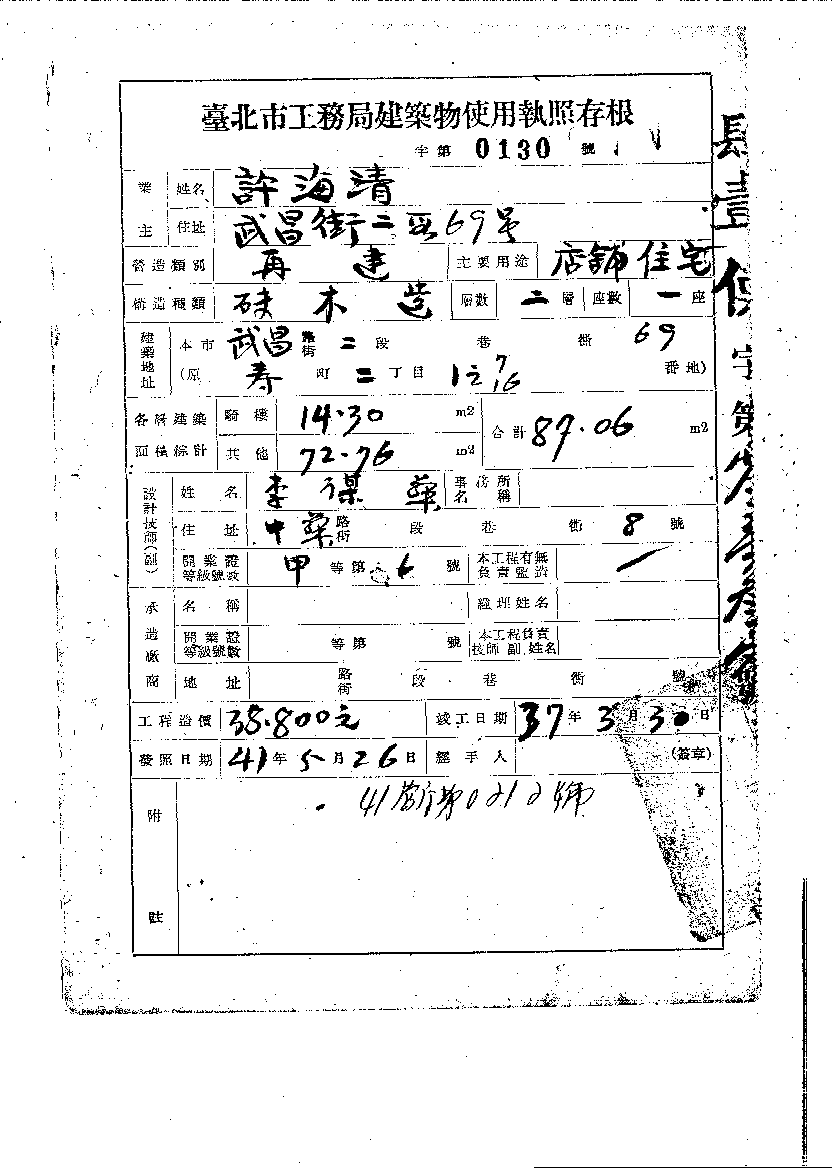 臺北市工務局建築物使用執照存根
字第 0130 號
業主 姓名 許海清
住址 武昌街二段69号
營造類別 再建 主要用途 店舖住宅
構造種類 磚木造 層數 二層 座數 一座
建築地址 本市 武昌 路街 二段 巷 衖 69
(原 寿町二丁目 番地)
各層建築面積綜計 騎樓 14.30 m2 合計 87.06 m2
其他 72.76 m2
設計技師(副) 姓名 李 事務所名稱
住址 中華 路街 段 巷 衖 8 號
開業證等級號數 甲等第 6 號 本工程有無負責監造
承造廠商 名稱 經理姓名
開業證等級號數 等第 號 本工程負責技師副姓名
地址 路街 段 巷 衖 號
工程造價 38.800元 竣工日期 37年3月30日
發照日期 41年5月26日 經手人 (簽章)
附註 41營字第0212號